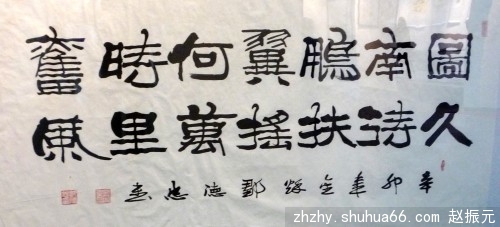 圖南鵬翼何時奮
久待扶搖萬里風
辛卯年金秋鄭德忠書
zhzhy.shuhua66.com 赵振元